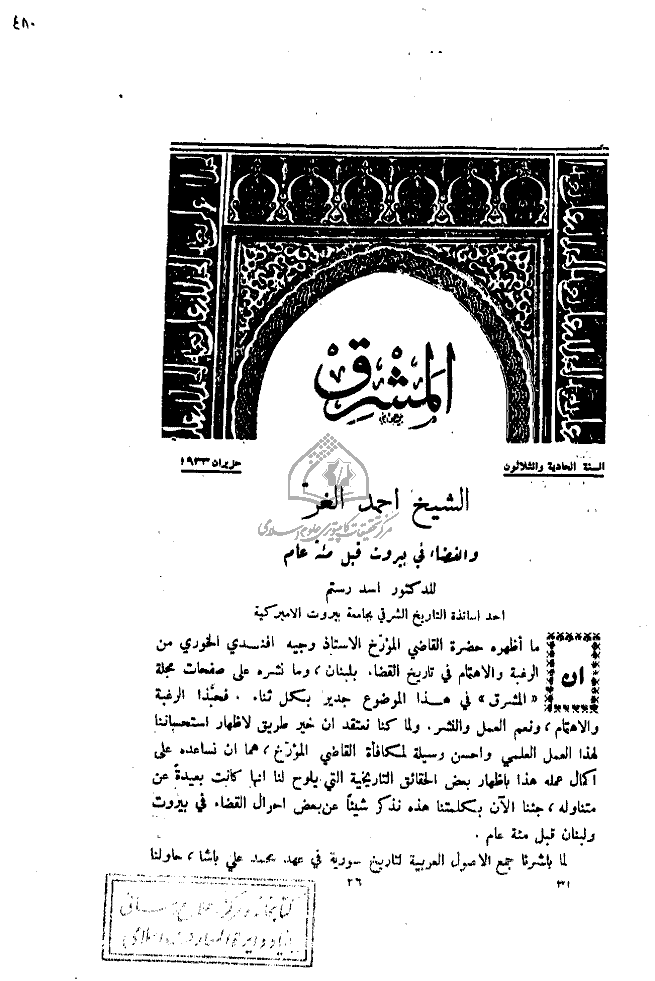 ٤٨٠
المشرق
السنة الحادية والثلاثون
حزيران ١٩٣٣
الشيخ احمد الغر
مركز تحقيقات كامپيوترى علوم اسلامى
والقضاء في بيروت قبل مئة عام
للدكتور اسد رستم
احد اساتذة التاريخ الشرقي بجامعة بيروت الاميركية
ان ما أظهره حضرة القاضي المؤرخ الاستاذ وجيه افندي الخوري من
الرغبة والاهتمام في تاريخ القضاء بلبنان، وما نشره على صفحات مجلة
«المشرق» في هذا الموضوع جدير بكل ثناء. فحبَّذا الرغبة
والاهتمام، ونعم العمل والنشر. ولما كنا نعتقد ان خير طريق لاظهار استحساننا
لهذا العمل العلمي واحسن وسيلة لمكافأة القاضي المؤرّخ، هما ان نساعده على
اكمال عمله هذا باظهار بعض الحقائق التاريخية التي يلوح لنا انها كانت بعيدةً عن
متناوله، جئنا الآن بكلمتنا هذه نذكر شيئاً عن بعض احوال القضاء في بيروت
ولبنان قبل مئة عام.
لما باشرنا جمع الاصول العربية لتاريخ سورية في عهد محمد علي باشا، حاولنا
٣١
٢٦